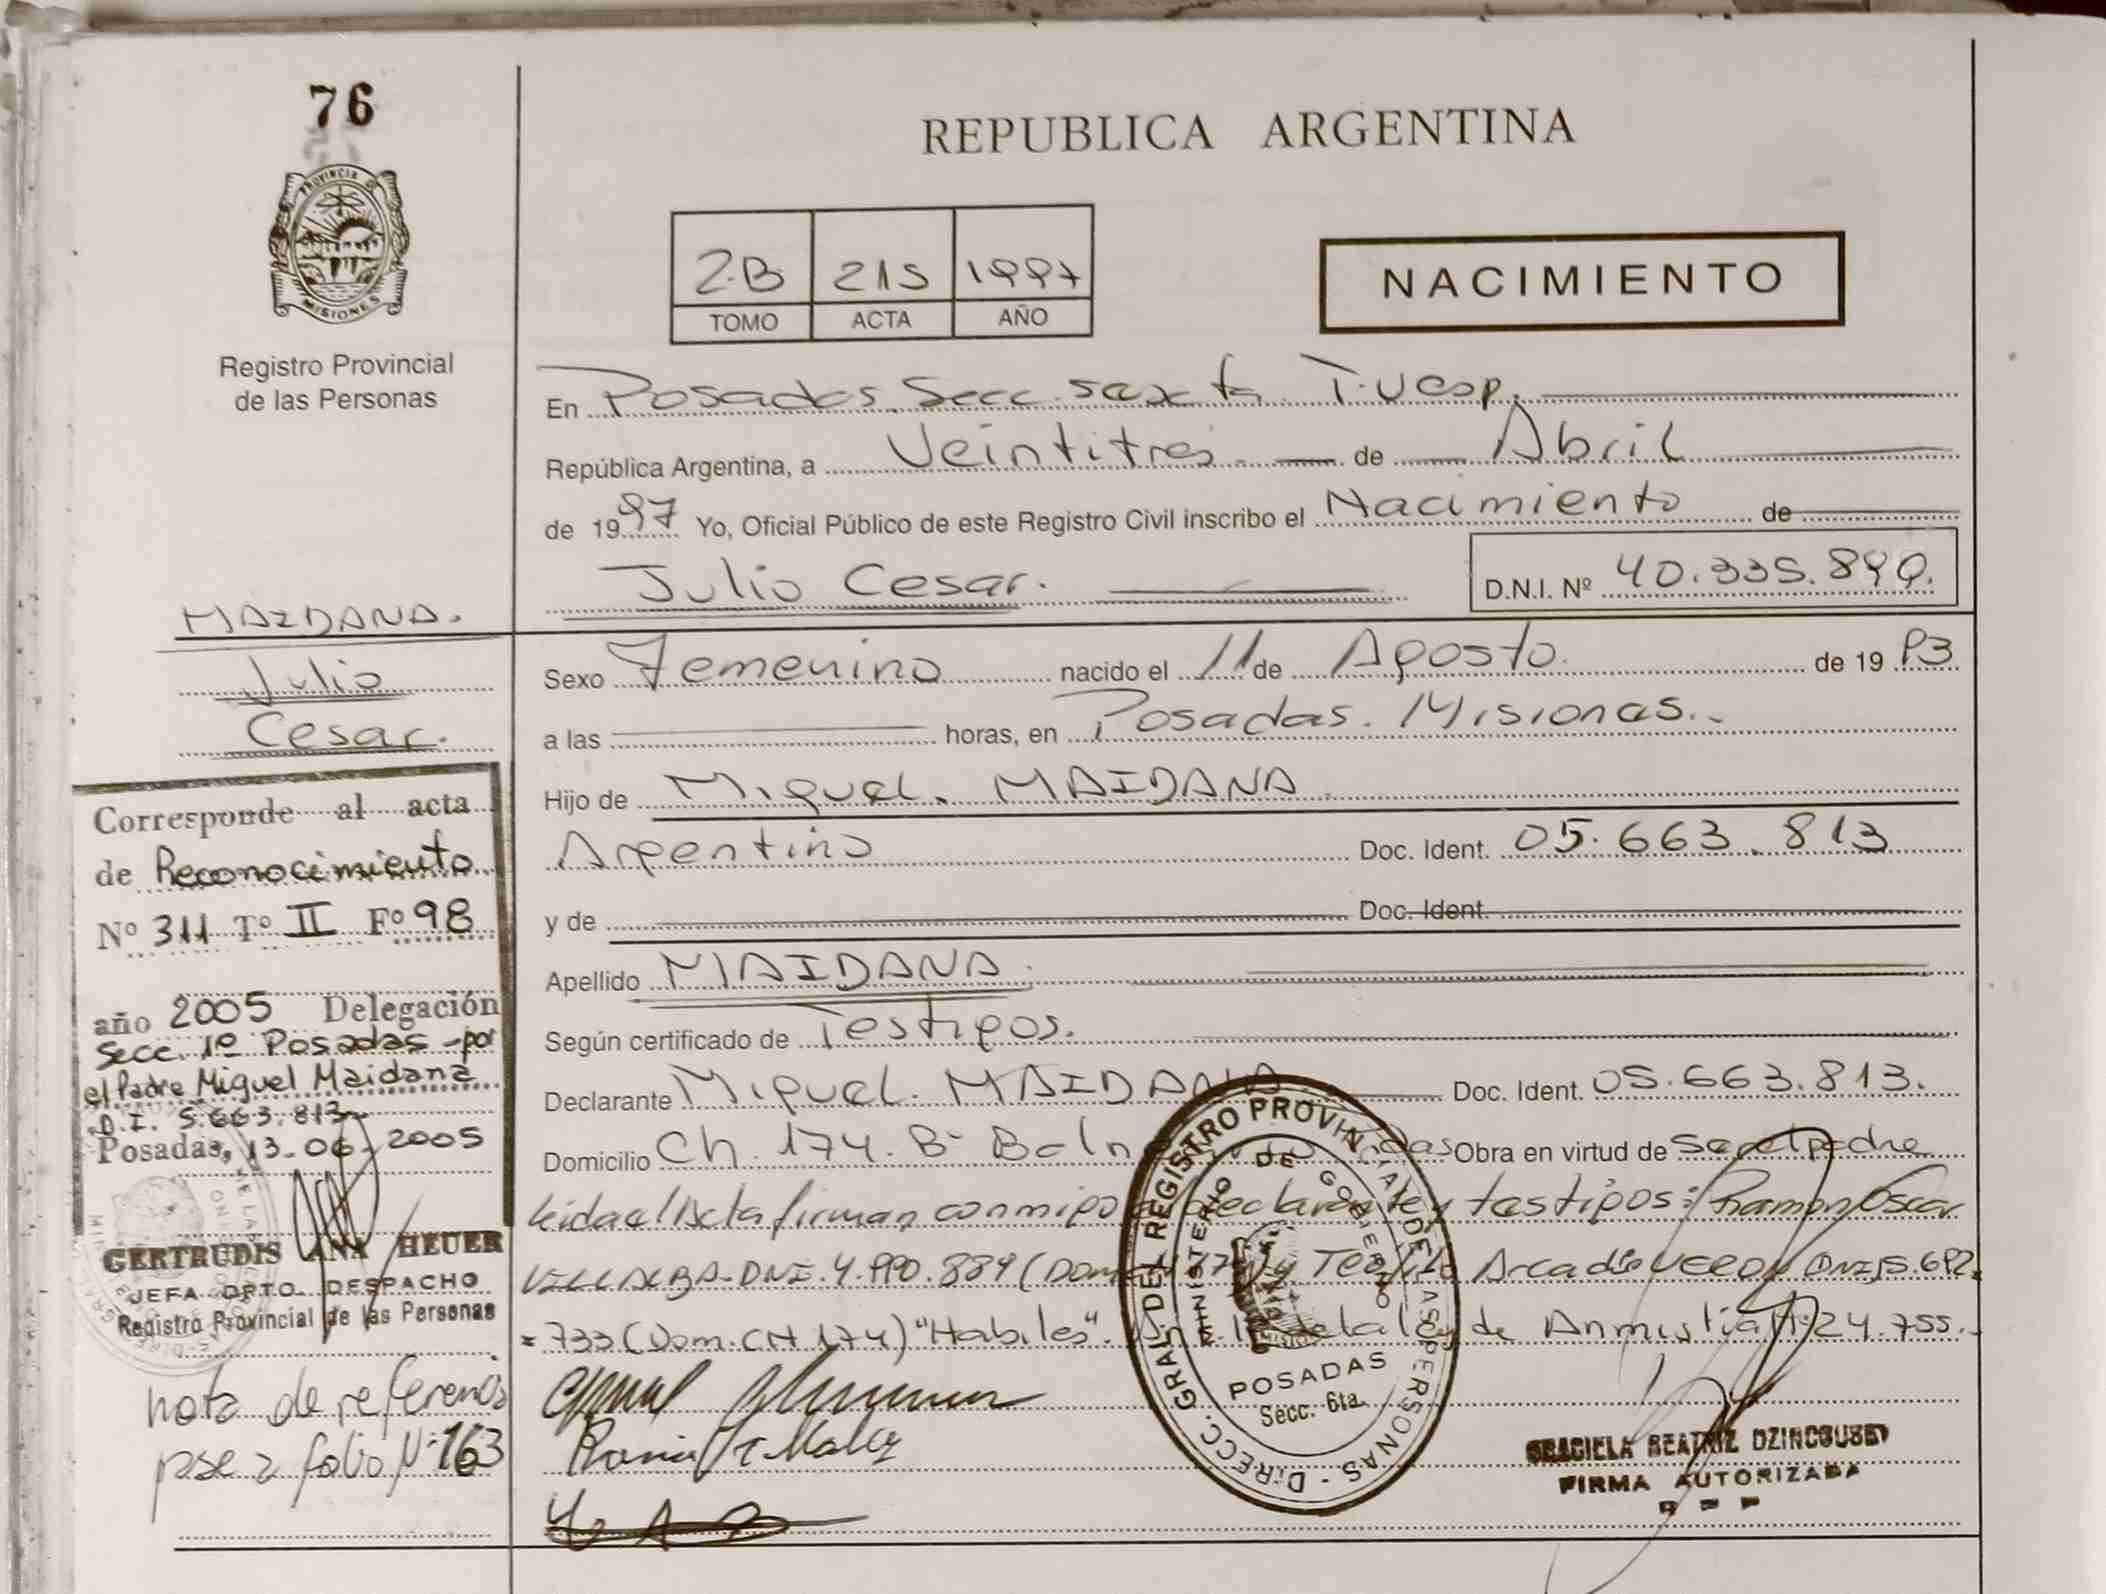 76
PROVINCIA D
MISIONES
Registro Provincial
de las Personas
REPUBLICA ARGENTINA
2-B 215 1997
TOMO ACTA AÑO
NACIMIENTO
En Posadas Secc. sexta T. Vesp.
República Argentina, a Veintitres de Abril
de 1997 Yo, Oficial Público de este Registro Civil inscribo el Nacimiento de
Julio Cesar.
D.N.I. Nº 40.335.890.
MAIDANA.
Julio
Cesar.
Sexo Femenino nacido el 11 de Agosto. de 19 93
a las horas, en Posadas. Misiones.
Hijo de Miguel. MAIDANA
Argentino Doc. Ident. 05.663.813
y de Doc. Ident.
Apellido MAIDANA.
Según certificado de Testigos.
Declarante Miguel. MAIDANA Doc. Ident. 05.663.813.
Domicilio Ch. 174. B- Obra en virtud de ser el padre
Leida el Acta firman conmigo Declarante y testigos: Ramon Oscar
VILLALBA-DNI.4.990.889 (Dom. y Arcadio VERON DNI.5.692.
=733 (Dom. CH 174) "Habiles". de la ley de Anmistia N: 24.755.
Corresponde al acta
de Reconocimiento
Nº 311 Tº II Fº 98
año 2005 Delegación
Secc. 1º Posadas - por
el Padre Miguel Maidana
D.I. 5.663.813
Posadas, 13-06-2005
GERTRUDIS ANA HEUER
JEFA DPTO. DESPACHO
Registro Provincial de las Personas
nota de referencia
pase a folio Nº 163
DIRECC. GRAL. DEL REGISTRO PROVINCIAL DE LAS PERSONAS
MINISTERIO DE GOBIERNO
MISIONES
POSADAS
Secc. 6ta.
GRACIELA BEATRIZ
FIRMA AUTORIZADA
R P P